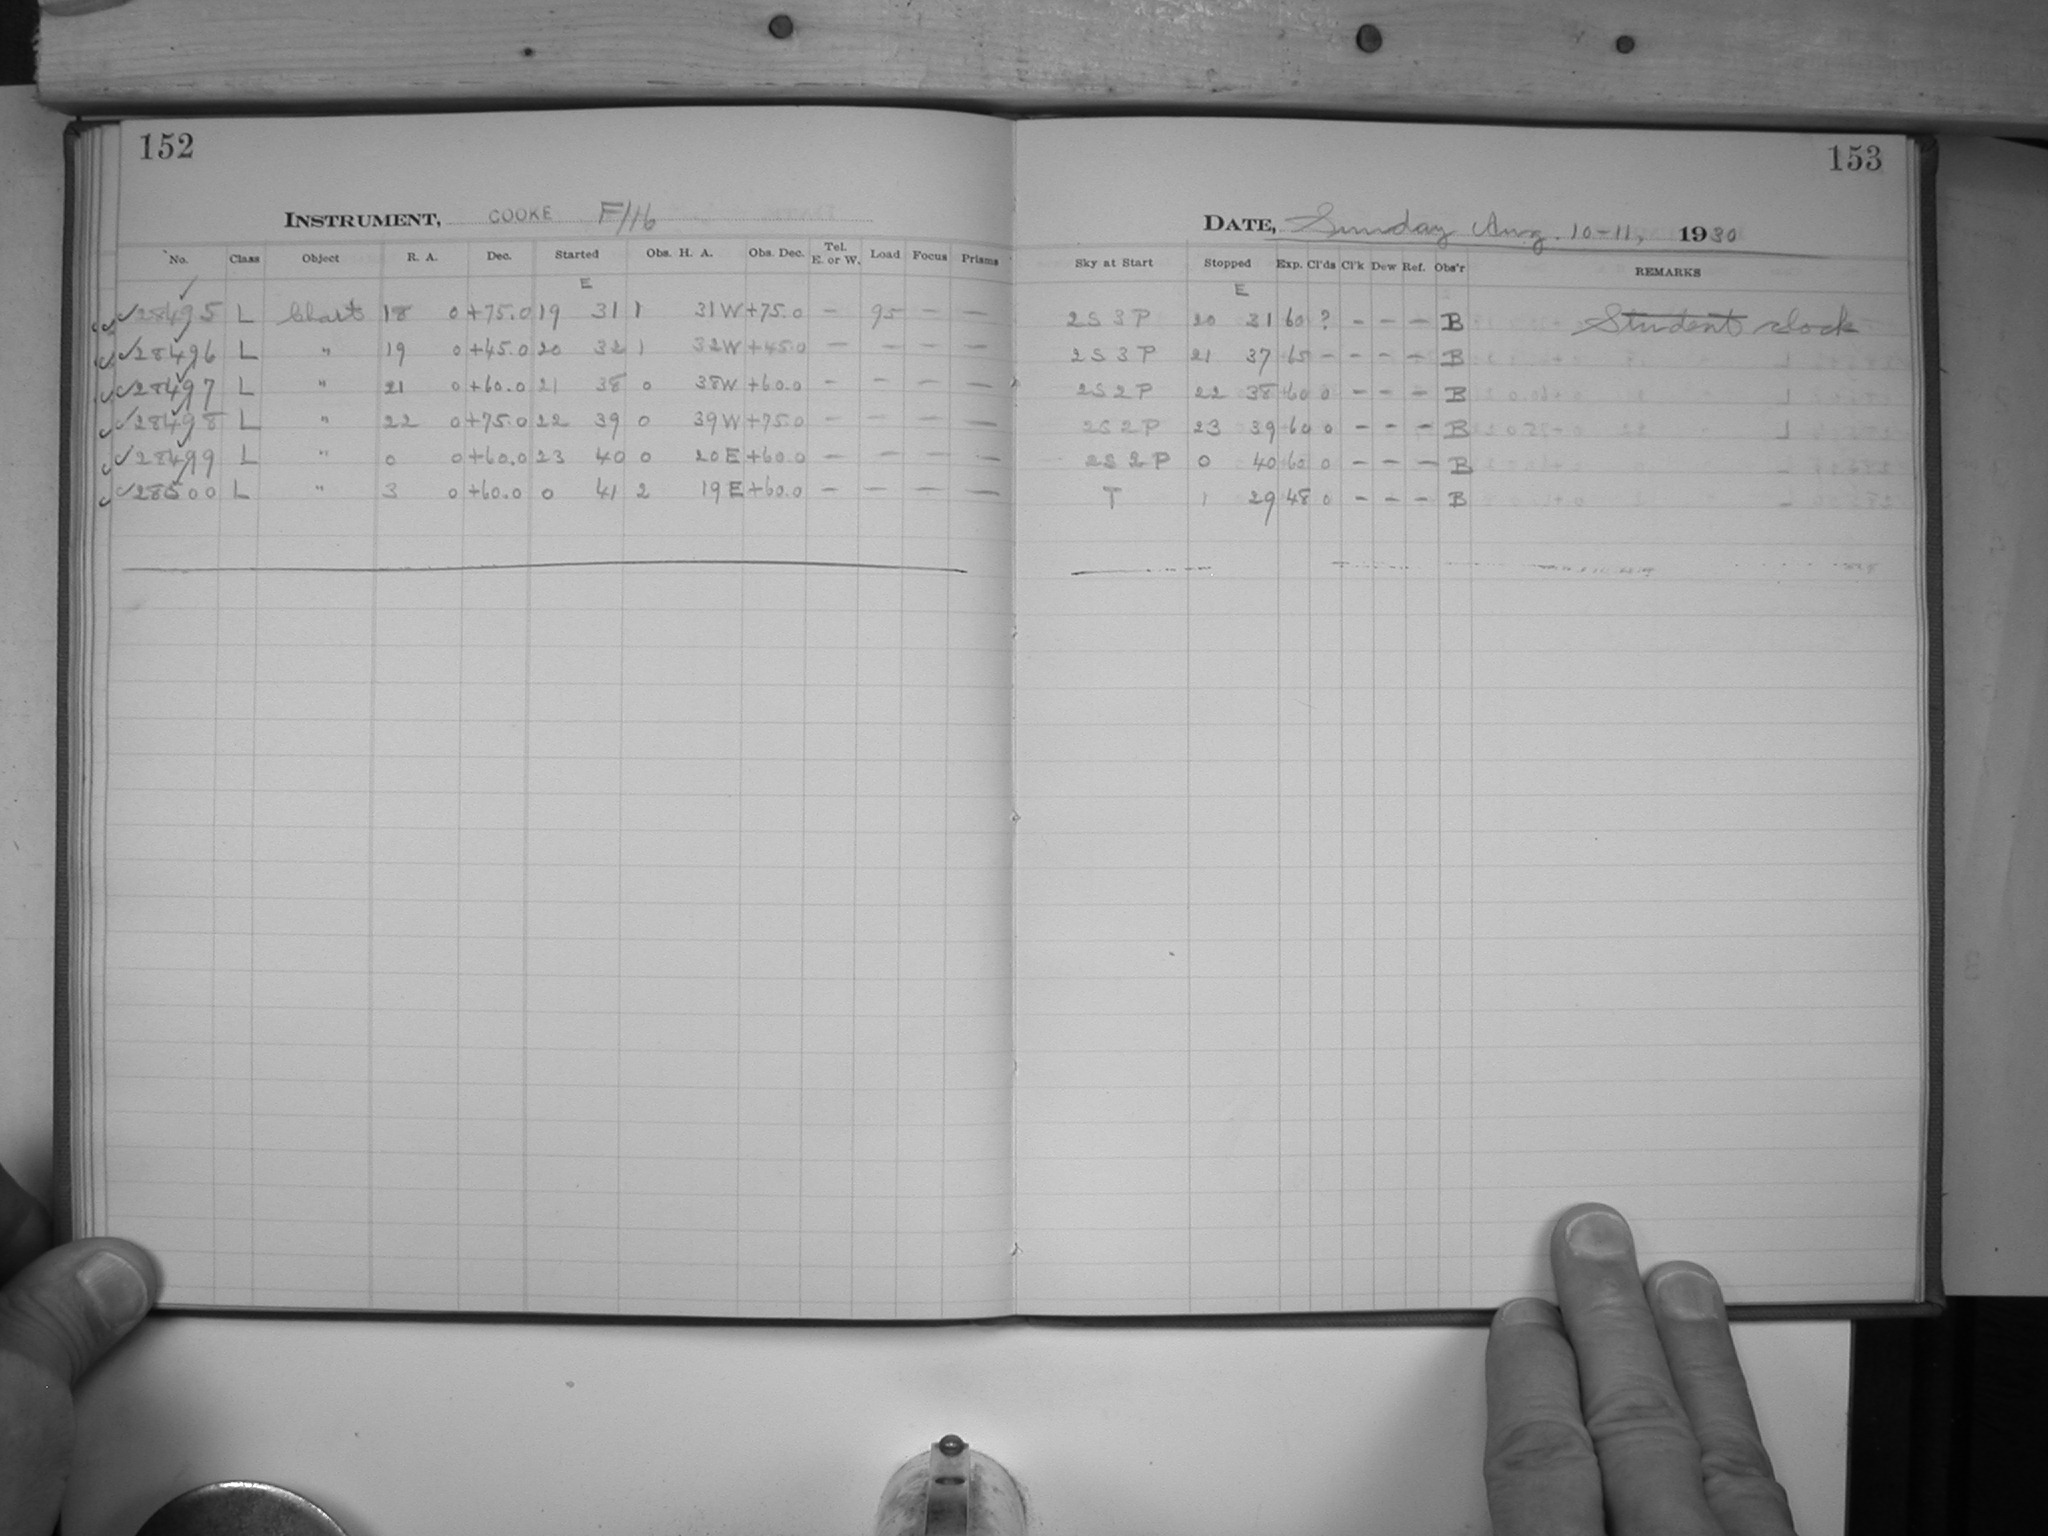 152
INSTRUMENT, COOKE F/16
No. Class Object R. A. Dec. Started Obs. H. A. Obs. Dec. Tel. E. or W. Load Focus Prisms
E
28495 L Chart 18 0 +75.0 19 31 1 31W +75.0 – 95 – –
28496 L " 19 0 +45.0 20 32 1 32W +45.0 – – – –
28497 L " 21 0 +60.0 21 38 0 38W +60.0 – – – –
28498 L " 22 0 +75.0 22 39 0 39W +75.0 – – – –
28499 L " 0 0 +60.0 23 40 0 20E +60.0 – – – –
28500 L " 3 0 +60.0 0 41 2 19E +60.0 – – – –
153
DATE, Sunday Aug. 10-11, 1930
Sky at Start Stopped Exp. Cl'ds Cl'k Dew Ref. Obs'r REMARKS
E
2S 3P 20 31 60 ? – – – B Student clock
2S 3P 21 37 65 – – – – B
2S 2P 22 38 60 0 – – – B
2S 2P 23 39 60 0 – – – B
2S 2P 0 40 60 0 – – – B
T 1 29 48 0 – – – B